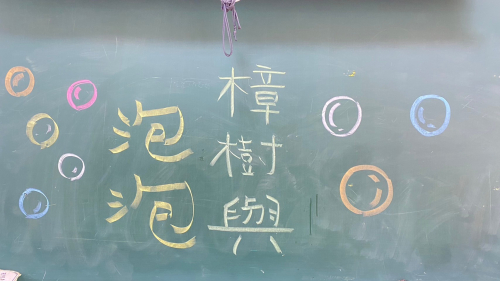 樟樹與
泡泡